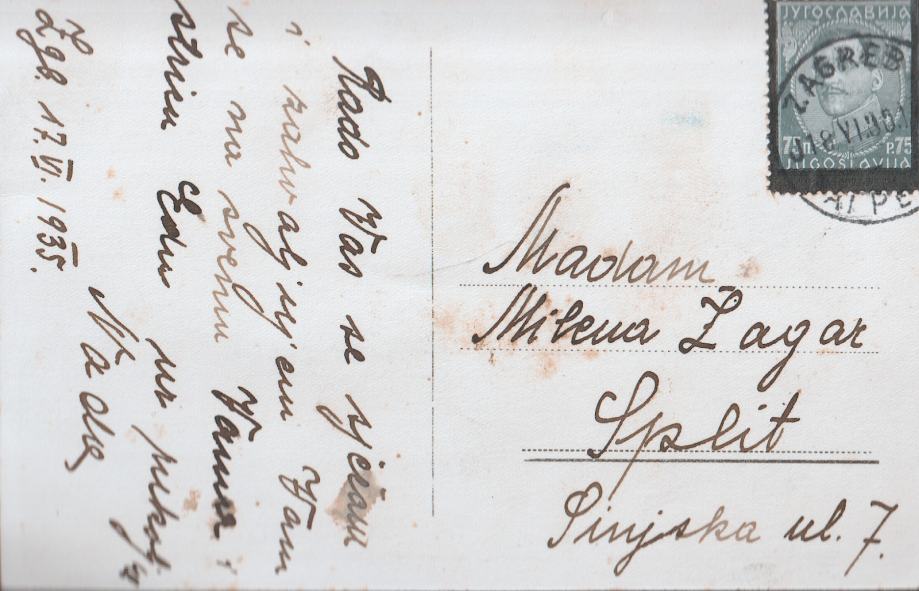 Rado Vas se sjećam
i zahvaljujem Vam
se na svemu Vama i
stricu Edu
Nada
Zgb. 17.VI. 1935.
ЈУГОСЛАВИЈА
ZAGREB
18 VI
75 П. P. 75
JUGOSLAVIJA
Madam
Milena Žagar
Split
Sinjska ul. 7.